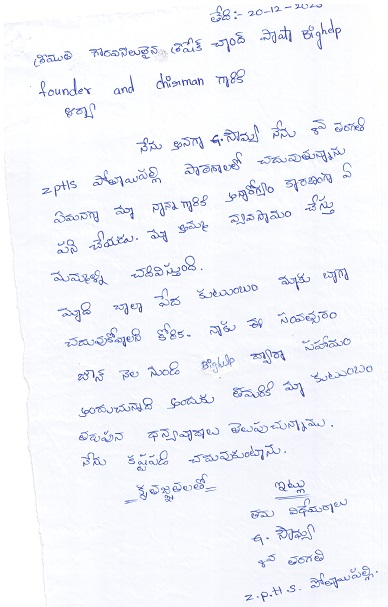 తేది:- 20-12-202
శ్రీయుత గౌరవనీయులైన షేక్ చాంద్ పాషా Bighelp
founder and chirman గారికి
నేను అనగా G. సౌమ్య నేను 8వ తరగతి
ZPHS పోత్తాయిపల్లి పాఠశాలలో చదువుతున్నాను
ఏమనగా మా నాన్నగారికి అనారోగ్యం కారణంగా ఏ
పని చేయరు. మా అమ్మ వ్యవసాయం చేస్తు
మమ్మల్ని చదివిస్తుంది.
మాది చాలా పేద కుటుంబం మాకు బాగా
చదువుకోవాలని కోరిక. నాకు ఈ సంవత్సరం
జూన్ నెల నుండి Bighelp ద్వారా సహాయం
అందుచున్నది అందుకు తమరికి మా కుటుంబం
తరుపున ధన్యవాదాలు తెలుపుచున్నాము.
నేను కష్టపడి చదువుకుంటాను.
=కృతజ్ఞతలతో=
ఇట్లు
తమ విధేయురాలు
G. సౌమ్య
8వ తరగతి
Z.P.H.S. పోత్తాయిపల్లి.